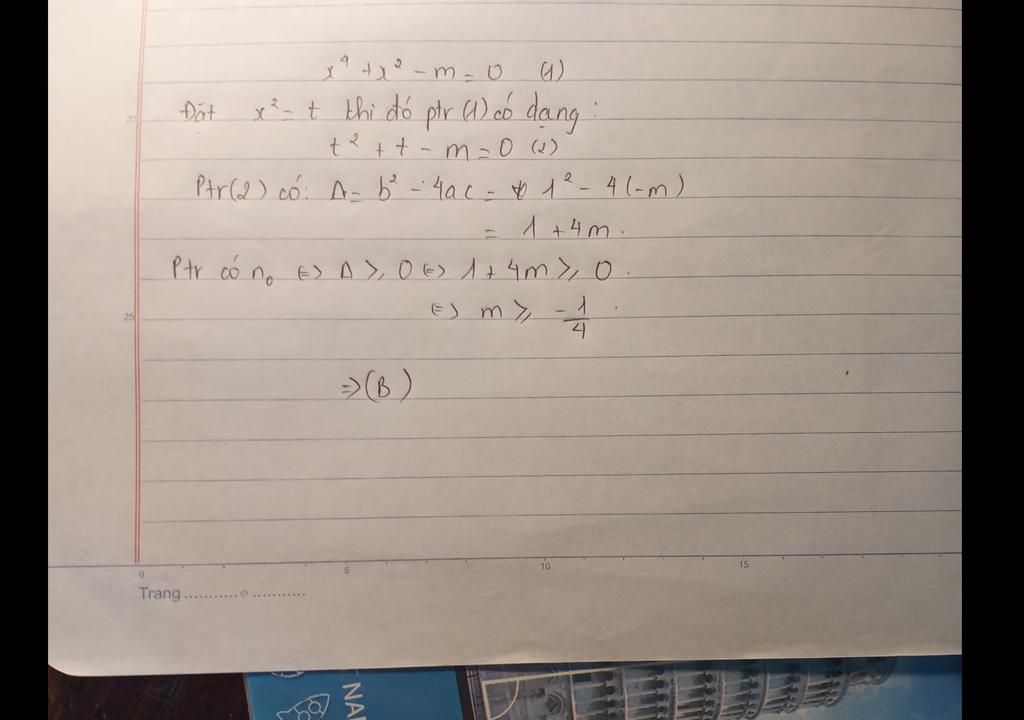 x⁴ + x² - m = 0 (1)
20
Đặt x² = t khi đó ptr (1) có dạng :
t² + t - m = 0 (2)
Ptr(2) có: Δ = b² - 4ac = 1² - 4(-m)
= 1 + 4m.
Ptr có n₀ <=> Δ ⩾ 0 <=> 1 + 4m ⩾ 0.
25
<=> m ⩾ -1/4.
=> (B)
0 5 10 15
Trang ...........o...........
NA